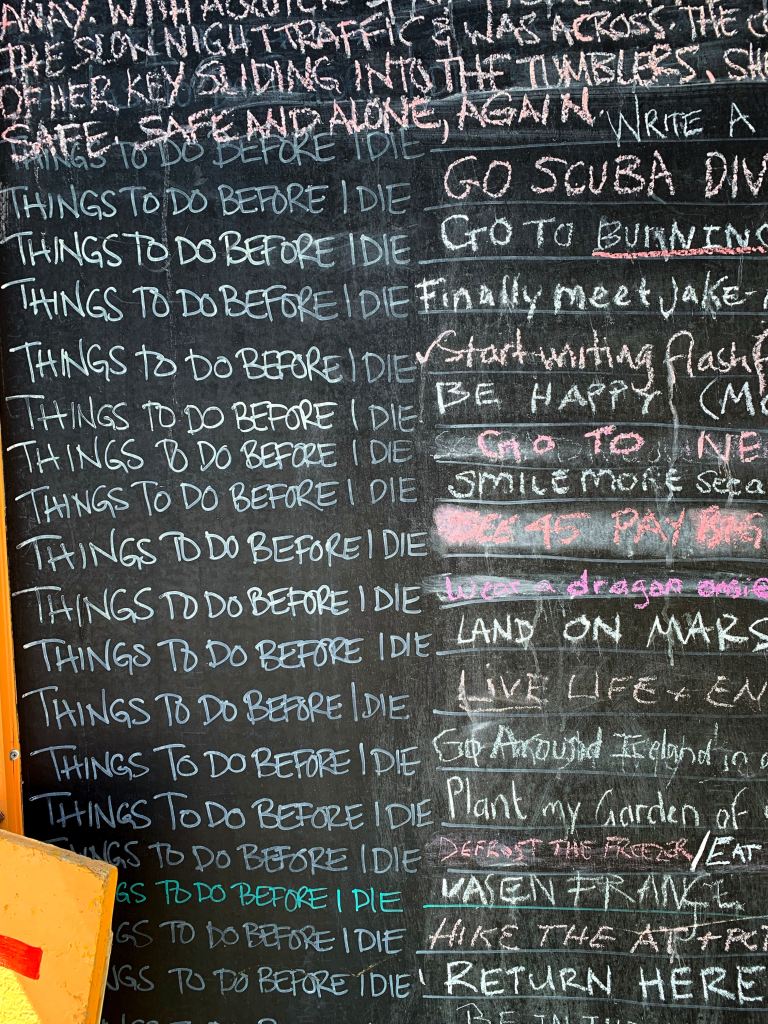 AWAY. WITH
THE SLOW NIGHT TRAFFIC & WAS ACROSS THE
OF HER KEY SLIDING INTO THE TUMBLERS. SHE
SAFE. SAFE AND ALONE, AGAIN.
THINGS TO DO BEFORE I DIE WRITE A
THINGS TO DO BEFORE I DIE GO SCUBA DIV
THINGS TO DO BEFORE I DIE GO TO BURNING
THINGS TO DO BEFORE I DIE Finally meet Jake-
THINGS TO DO BEFORE I DIE Start writing flash f
THINGS TO DO BEFORE I DIE BE HAPPY (MO
THINGS TO DO BEFORE I DIE GO TO NE
THINGS TO DO BEFORE I DIE SMILE MORE
THINGS TO DO BEFORE I DIE 45 PAY
THINGS TO DO BEFORE I DIE Wear a dragon onsie
THINGS TO DO BEFORE I DIE LAND ON MARS
THINGS TO DO BEFORE I DIE LIVE LIFE + EN
THINGS TO DO BEFORE I DIE Go Around Iceland in a
THINGS TO DO BEFORE I DIE Plant my Garden of
NGS TO DO BEFORE I DIE DEFROST THE FREEZER/EAT
GS TO DO BEFORE I DIE VASEN FRANCE
GS TO DO BEFORE I DIE HIKE THE AT + PCT
NGS TO DO BEFORE I DIE RETURN HERE
BE IN